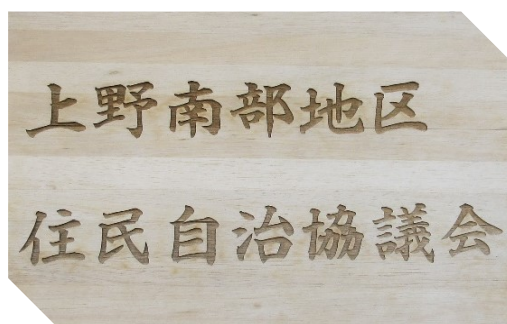 上野南部地区
住民自治協議会